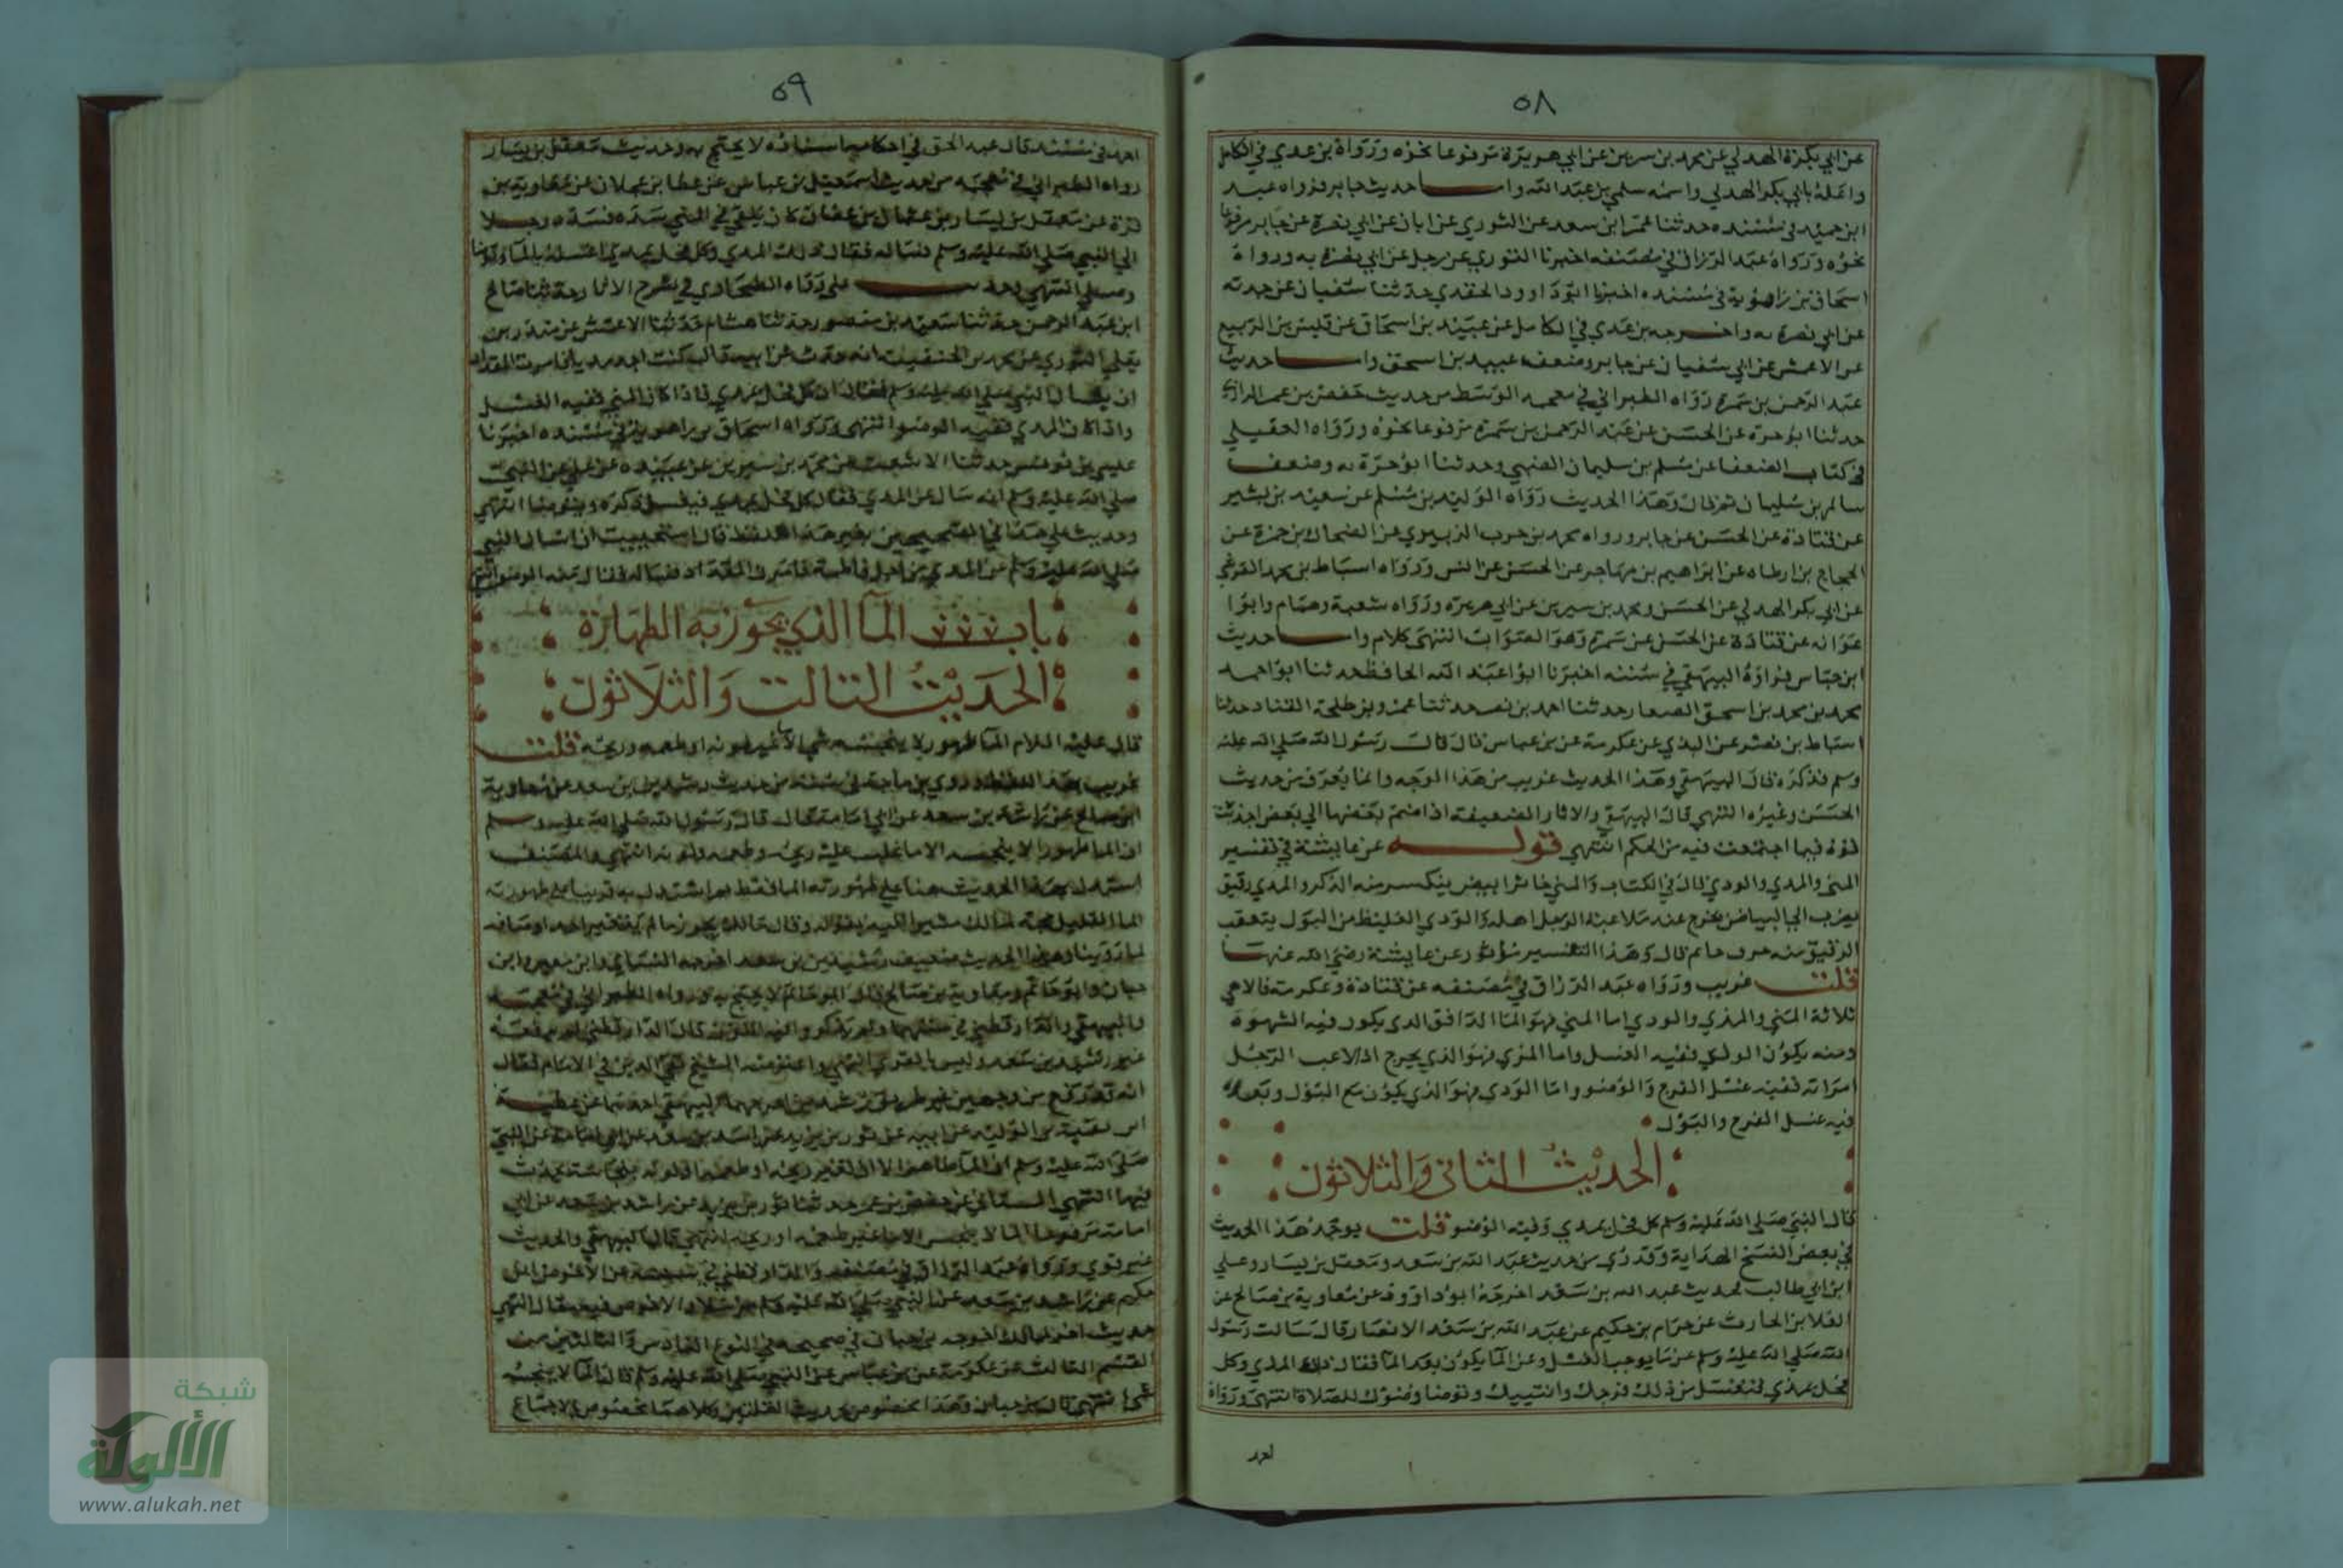 ٥٨
عن ابي بكرة الهدلي عن محمد بن سيرين عن ابي هريرة مرفوعا نحوه ورواه بن عدي في الكامل
واعله بابي بكر الهدلي واسمه سلمي بن عبد الله واما حديث جابر فرواه عبد
ابن حميد في مسنده حدثنا عمر ابن سعد عن الثوري عن ابان عن ابي نضرة عن جابر مرفوعا
نحوه ورواه عبد الرزاق في مصنفه اخبرنا الثوري عن رجل عن ابي نضرة به ورواه
اسحاق بن راهويه في مسنده اخبرنا ابو داوود الحفدي حدثنا سفيان عن حدثه
عن ابي نضرة به واخرجه بن عدي في الكامل عن عبيد بن اسحاق عن قليس بن الربيع
عن الاعمش عن ابي سفيان عن جابر وضعف عبيد بن اسحق واما حديث
عبد الرحمن بن سمرة رواه الطبراني في معجمه الوسط من حديث حفص بن عمر الرازي
حدثنا ابو حرة عن الحسن عن عبد الرحمن بن سمرة مرفوعا نحوه ورواه العقيلي
في كتاب الضعفا عن مسلم بن سليمان الضبي وحدثنا ابو حرة به وضعف
سالم بن سليمان ثم قال وهذا الحديث رواه الوليد بن مسلم عن سعيد بن بشير
عن قتادة عن الحسن عن جابر ورواه محمد بن حرب الزبيري عن الضحاك بن حمزة عن
الحجاج بن ارطاه عن ابراهيم بن مهاجر عن الحسن عن انس ورواه اسباط بن محمد القرشي
عن ابي بكر الهدلي عن الحسن ومحمد بن سيرين عن ابي هريره ورواه شعبة وهمام وابوا
عوانه عن قتادة عن الحسن عن سمرة وهو الصواب انتهى كلام واما حديث
ابن عباس فرواه البيهقي في سننه اخبرنا ابو عبد الله الحافظ حدثنا ابو احمد
محمد بن محمد بن اسحق الصفار حدثنا احمد بن نصر حدثنا عمرو بن طلحة القناد حدثنا
اسباط بن نصر عن السدي عن عكرمة عن بن عباس قال قال رسول الله صلى الله عليه
وسلم فذكره قال البيهقي وهذا الحديث غريب من هذا الوجه وانما يعرف من حديث
الحسن وغيره انتهى قال البيهقي والاثار الضعيفة اذا ضم بعضها الي بعض احدثت
قوة فيما اجتمعت فيه من الحكم انتهى قوله عن عايشة في تفسير
المنى والمدي والودي قال في الكتاب والمني خاثر ابيض ينكسر منه الذكر والمدي رقيق
يضرب الي البياض يخرج عند ملاعبة الرجل اهله والودي الغليظ من البول يتعقب
الرقيق منه خروجا ثم قال وهذا التفسير ماثور عن عايشة رضي الله عنها
قلت غريب ورواه عبد الرزاق في مصنفه عن قتادة وعكرمة قالا هي
ثلاثة المني والمذي والودي اما المني فهو الما الدافق الدي يكون فيه الشهوة
ومنه يكون الولد ففيه الغسل واما المزي فهو الذي يخرج اذا لاعب الرجل
امراته ففيه غسل الفرج والوضو واما الودي فهو الذي يكون مع البول وبعده
فيه غسل الفرج والبول
الحديث الثاني والثلاثون
قال النبي صلى الله عليه وسلم كل فحل يمدي وفيه الوضو قلت يوجد هذا الحديث
في بعض النسخ الهداية وقد روي من حديث عبد الله بن سعد ومعقل بن يسار وعلي
ابن ابي طالب فحديث عبد الله بن سعد اخرجه ابو داوود عن معاوية بن صالح عن
العلا بن الحارث عن حرام بن حكيم عن عبد الله بن سعد الانصار قال سالت رسول
الله صلى الله عليه وسلم عن ما يوجب الغسل وعن الما يكون بعد الما فقال ذلك المذي وكل
فحل يمذي فتغتسل من ذلك فرجك وانثييك وتوضا وضوك للصلاة انتهى ورواه
احمد
٥٩
احمد في مسنده قال عبد الحق في احكامه اسناده لا يحتج به وحديث معقل بن يسار
رواه الطبراني في معجمه من حديث اسمعيل بن عياش عن عطا بن عجلان عن معاوية بن
قرة عن معقل بن يسار عن عثمان بن عفان كان يلقى في المني شدة فسده رجلا
الي النبي صلى الله عليه وسلم فساله فقال ذلك المدي وكل فحل يمدي اغسله بالماء وتوضا
وصلي انتهى وحديث علي رواه الطحاوي في شرح الاثار حدثنا صالح
ابن عبد الرحمن حدثنا سعيد بن منصور حدثنا هشام حدثنا الاعمش عن منذر بن
يعلي الثوري عن محمد بن الحنفية انه حدث عن ابيه قال كنت اجد مديا فامرت المقداد
ان يسال النبي صلى الله عليه وسلم فقال ان كل فحل يمدي فاذا كان المني ففيه الغسل
واذا كان المدي ففيه الوضوا انتهى ورواه اسحاق بن راهويه في مسنده اخبرنا
عيسي بن يونس حدثنا الاشعث عن محمد بن سيرين عن عبيده عن علي عن النبي
صلى الله عليه وسلم انه سال عن المدي فقال كل فحل يمدي فيغسل ذكره ويتوضا انتهى
وحديث علي هذا في الصحيحين بغير هذا اللفظ قال استحييت ان اسال النبي
صلى الله عليه وسلم عن المدي من اجل فاطمة فامرت المقداد فساله فقال منه الوضو انتهى
باب الما الذي يجوز به الطهارة
الحديث الثالث والثلاثون
قال عليه السلام الما طهور لا ينجسه شي الا ما غير لونه او طعمه وريحه قلت
غريب بهذا اللفظ وروي بن ماجة في سننه من حديث رشدين بن سعد عن معاوية
ابن صالح عن راشد بن سعد عن ابي امامة قال قال رسول الله صلى الله عليه وسلم
ان الما طهور الا ينجسه الا ما غلب عليه ريحه وطعمه ولونه انتهى والمصنف
استدل بهذا الحديث هنا على طهورية الما فقط ثم استدل به قريبا على طهورية
الما القليل حجة لمالك مشيرا اليه بقوله وقال مالك يجوز ما لم يتغير احد اوصافه
لما روينا وهذا الحديث ضعيف رشدين بن سعد اخرجه النساي وابن معين وابن
حبان وابو حاتم ومعاوية بن صالح قال ابو حاتم لا يحتج به ورواه الطبراني في معجمه
والبيهقي والدارقطني في سننهما ولم يذكرا فيه اللون قال الدارقطني لم يرفعه
غير رشدين بن سعد وليس بالقوي انتهى واعترضه الشيخ تقي الدين في الامام فقال
انه قد رفع من وجهين غير طريق رشدين اخرجهما البيهقي احدهما عن عطية
ابن بقية بن الوليد عن ابيه عن ثور بن يزيد عن راشد بن سعد عن ابي امامة عن النبي
صلى الله عليه وسلم ان الما طاهر الا ان تغير ريحه او طعمه او لونه بنجاسة تحدث
فيها انتهى الثاني عن حفص بن عمر حدثنا ثور بن يزيد عن راشد بن سعد عن ابي
امامة مرفوعا الما لا ينجس الا ما غير طعمه او ريحه انتهى قال البيهقي والحديث
غير قوي ورواه عبد الرزاق في مصنفه والدارقطني في سننه عن الاحوص بن
حكيم عن راشد بن سعد عن النبي صلى الله عليه وسلم مرسلا والاحوص فيه مقال انتهى
حديث اخر لمالك اخرجه بن حبان في صحيحه في النوع السادس والثالثين من
القسم الثالث عن عكرمة عن بن عباس عن النبي صلى الله عليه وسلم قال الما لا ينجسه
شي انتهى قال بن حبان وهذا مخصوص بحديث القلتين وكلاهما مخصوص بالاجماع
شبكة
الألوكة
www.alukah.net